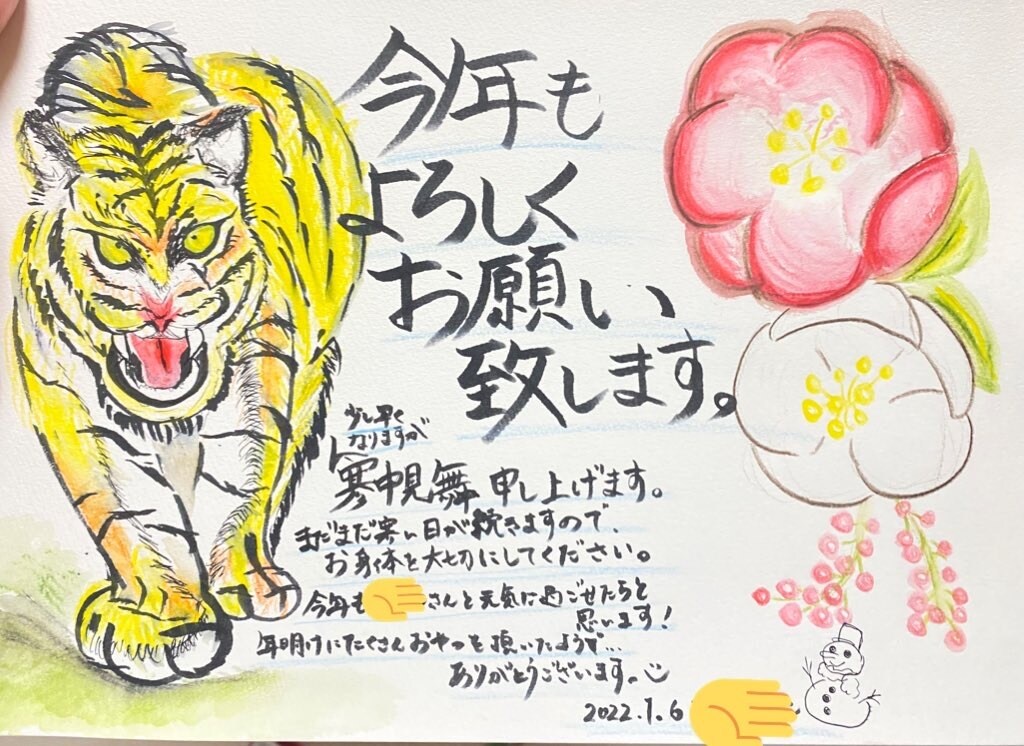 今年も
よろしく
お願い
致します。
少し早く
なりますが
寒中見舞 申し上げます。
まだまだ寒い日が続きますので、
お身体を大切にしてください。
今年も さんと元気に過ごせたらと
思います!
年明けにたくさんおやつを頂いたようで…
ありがとうございます。
2022.1.6